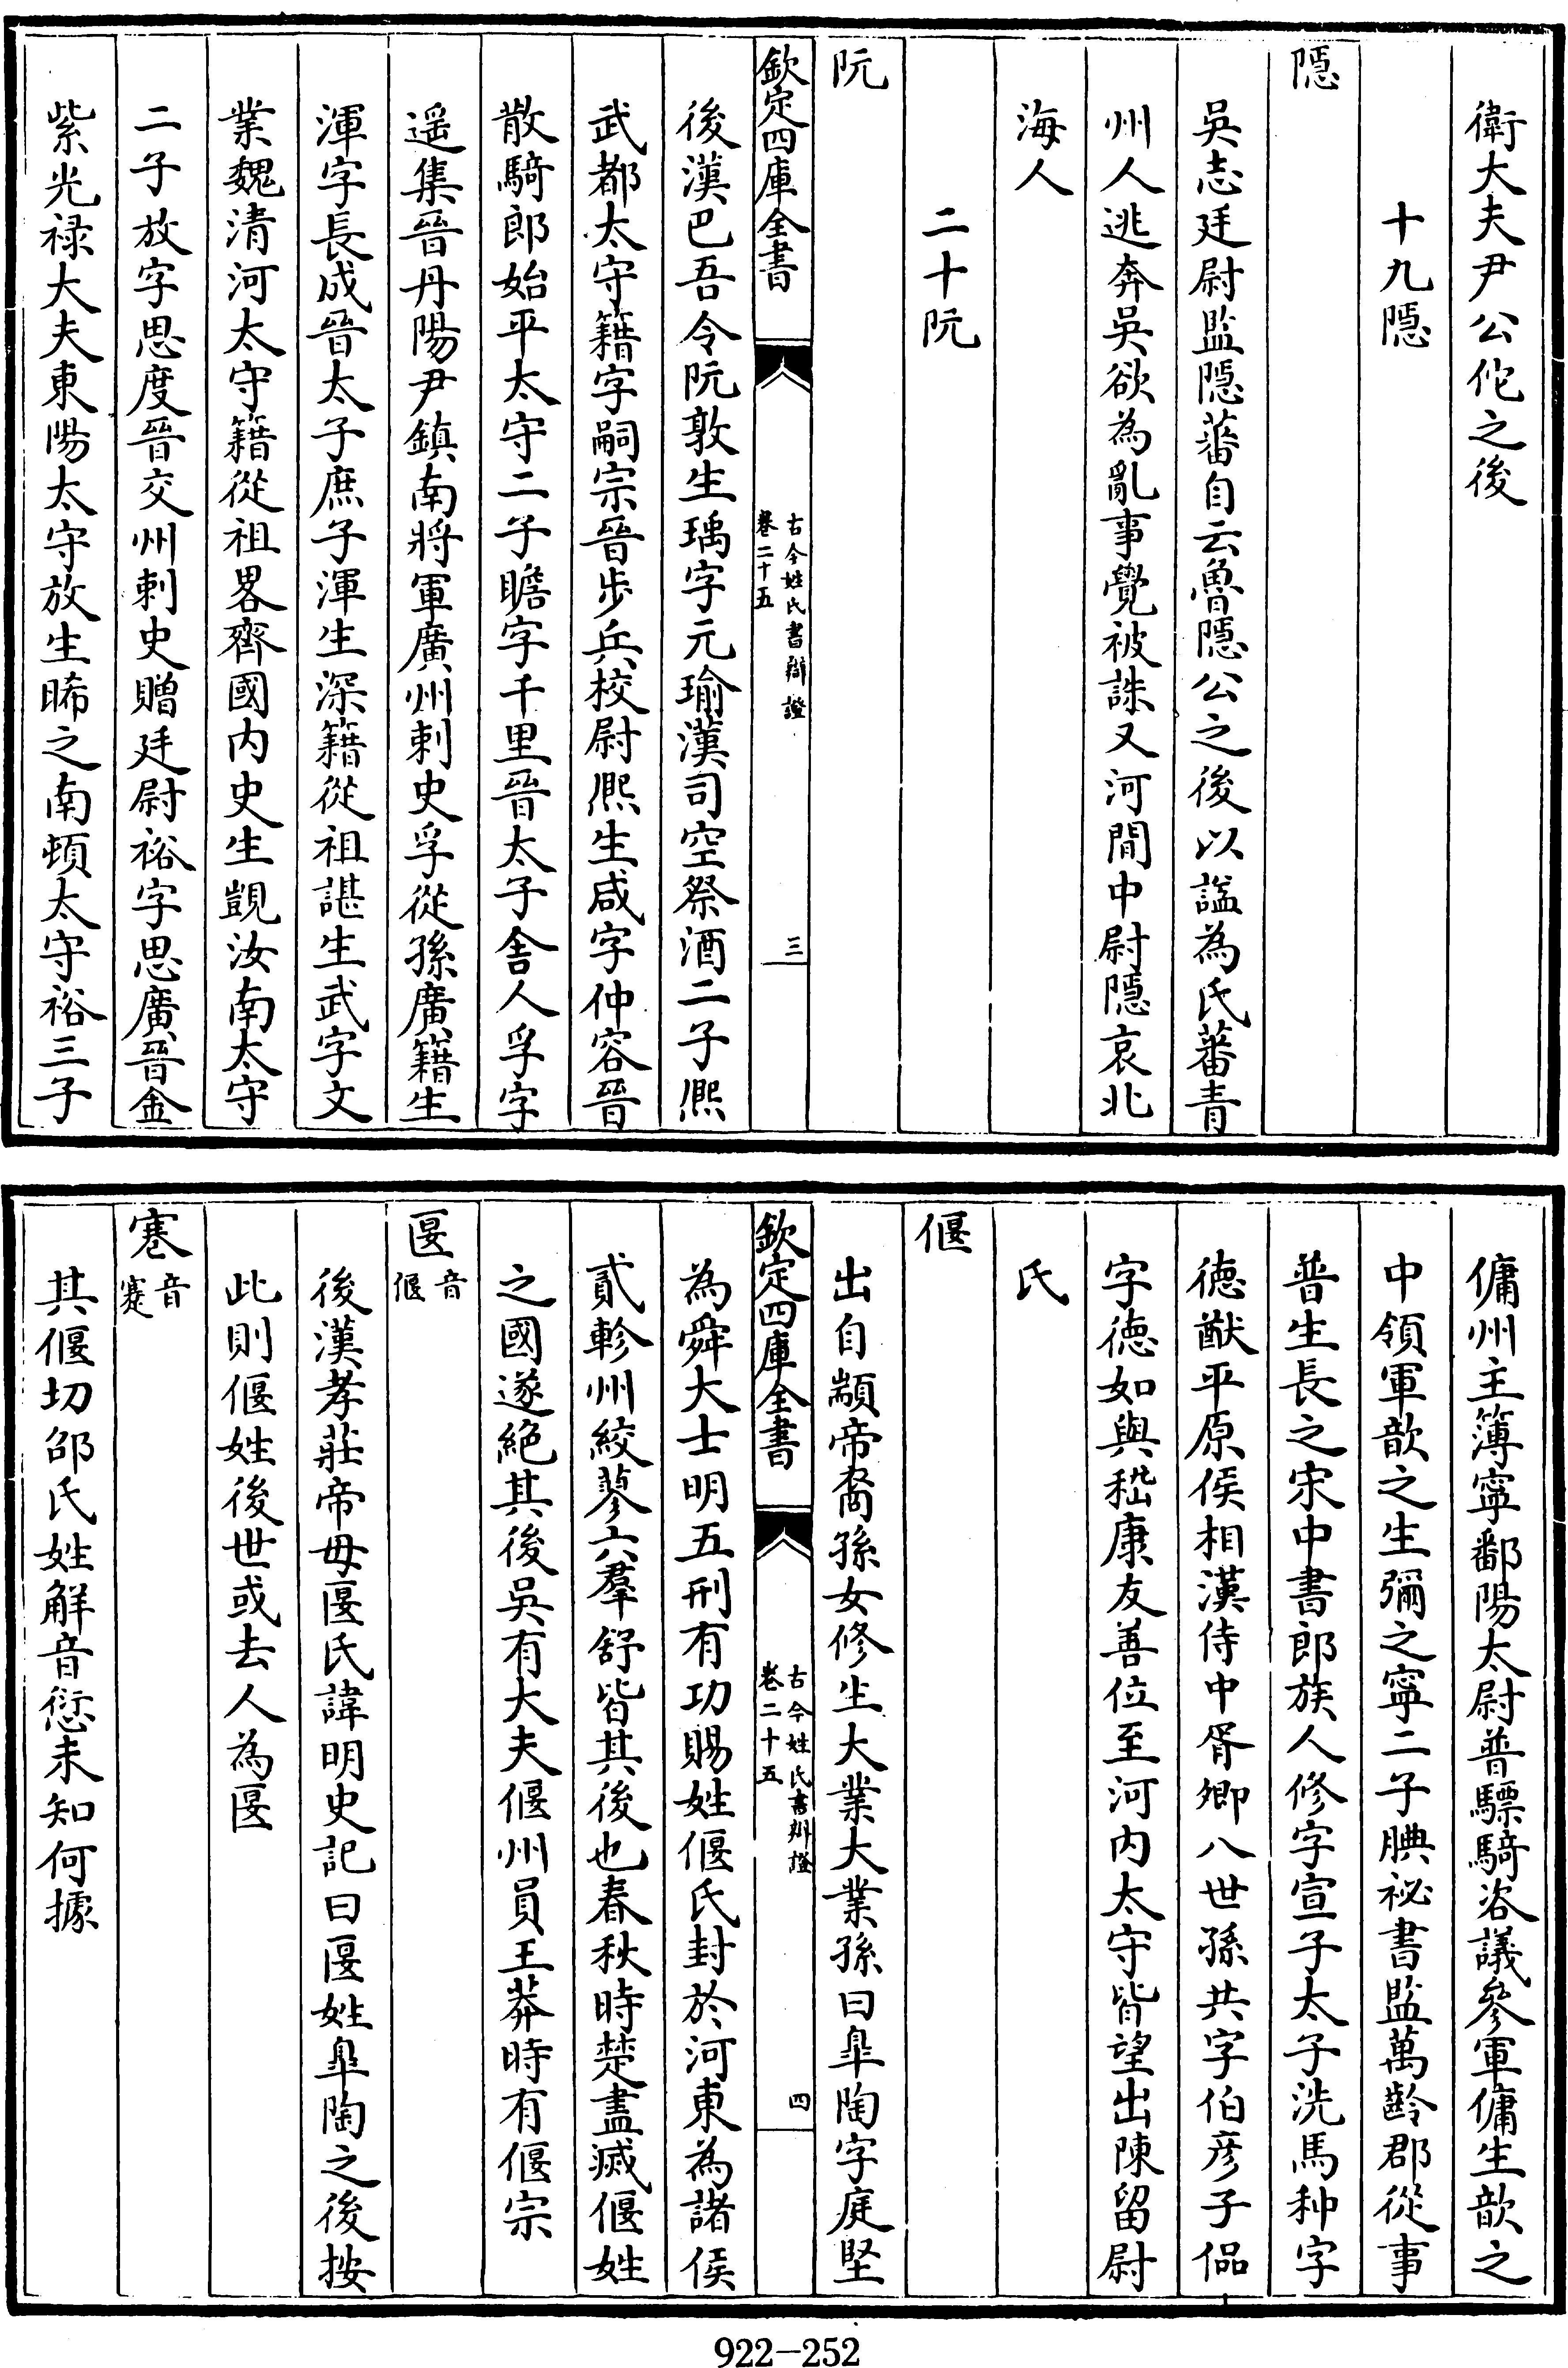 衛大夫尹公佗之後
十九隱
隱
吳志廷尉監隱蕃自云魯隱公之後以謚為氏蕃青
州人逃奔吳欲為亂事覺被誅又河間中尉隱哀北
海人
二十阮
阮
欽定四庫全書
古今姓氏書辯證
卷二十五
三
後漢巴吾令阮敦生瑀字元瑜漢司空祭酒二子熈
武都太守籍字嗣宗晉步兵校尉熈生咸字仲容晉
散騎郎始平太守二子瞻字千里晉太子舍人孚字
遥集晉丹陽尹鎮南將軍廣州刺史孚從孫廣籍生
渾字長成晉太子庶子渾生深籍從祖諶生武字文
業魏清河太守籍從祖畧齊國内史生覬汝南太守
二子放字思度晉交州刺史贈廷尉裕字思廣晉金
紫光禄大夫東陽太守放生晞之南頓太守裕三子
傭州主簿寧鄱陽太尉普驃騎咨議參軍傭生歆之
中領軍歆之生彌之寧二子腆祕書監萬齡郡從事
普生長之宋中書郎族人修字宣子太子洗馬种字
徳猷平原侯相漢侍中胥卿八世孫共字伯彦子偘
字徳如與嵇康友善位至河内太守皆望出陳留尉
氏
偃
出自顓帝裔孫女修生大業大業孫曰臯陶字庭堅
欽定四庫全書
古今姓氏書辯證
卷二十五
四
為舜大士明五刑有功賜姓偃氏封於河東為諸侯
貳軫州絞蓼六羣舒皆其後也春秋時楚盡滅偃姓
之國遂絶其後吳有大夫偃州員王莽時有偃宗
匽音偃
後漢孝莊帝母匽氏諱明史記曰匽姓臯陶之後按
此則偃姓後世或去人為匽
寋音蹇
其偃切邵氏姓解音愆未知何據
922-252